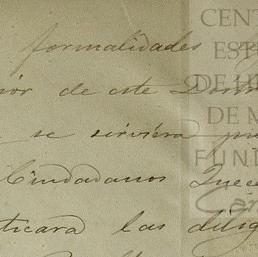 formalidades
ior de este
se sirviera
Ciudadanos Juec
ticara las dilig
CENT
EST
DE H
DE M
FUND
Car